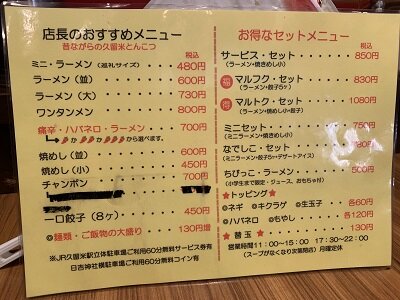 店長のおすすめメニュー
昔ながらの久留米とんこつ
税込
ミニ・ラーメン(並丼サイズ) 480円
ラーメン(並) 600円
ラーメン(大) 730円
ワンタンメン 800円
痛辛・ハバネロ・ラーメン 700円
から選べます。
焼めし(並) 600円
焼めし(小) 450円
チャンポン 700円
一口餃子(8ヶ) 450円
◎麺類・ご飯物の大盛り 130円増
※JR久留米駅立体駐車場ご利用60分無料サービス券有
日吉神社横駐車場ご利用60分無料コイン有
お得なセットメニュー
税込
サービス・セット 850円
(ラーメン・焼きめし小)
福 マルフク・セット 830円
(ラーメン・餃子5ヶ)
得 マルトク・セット 1080円
(ラーメン・焼めし小・餃子)
ミニセット 750円
(ミニラーメン・焼めし小)
なでしこ・セット 780円
(ミニラーメン・餃子5ヶ・デザートアイス)
ちびっこ・ラーメン 500円
(小学生まで限定・ジュース、おもちゃ付)
★トッピング★
◎ネギ ◎キクラゲ ◎生玉子 各60円
◎ハバネロ ◎もやし 各120円
★替玉 130円
営業時間11:00~15:00 17:30~22:00
(スープがなくなり次第閉店)月曜定休